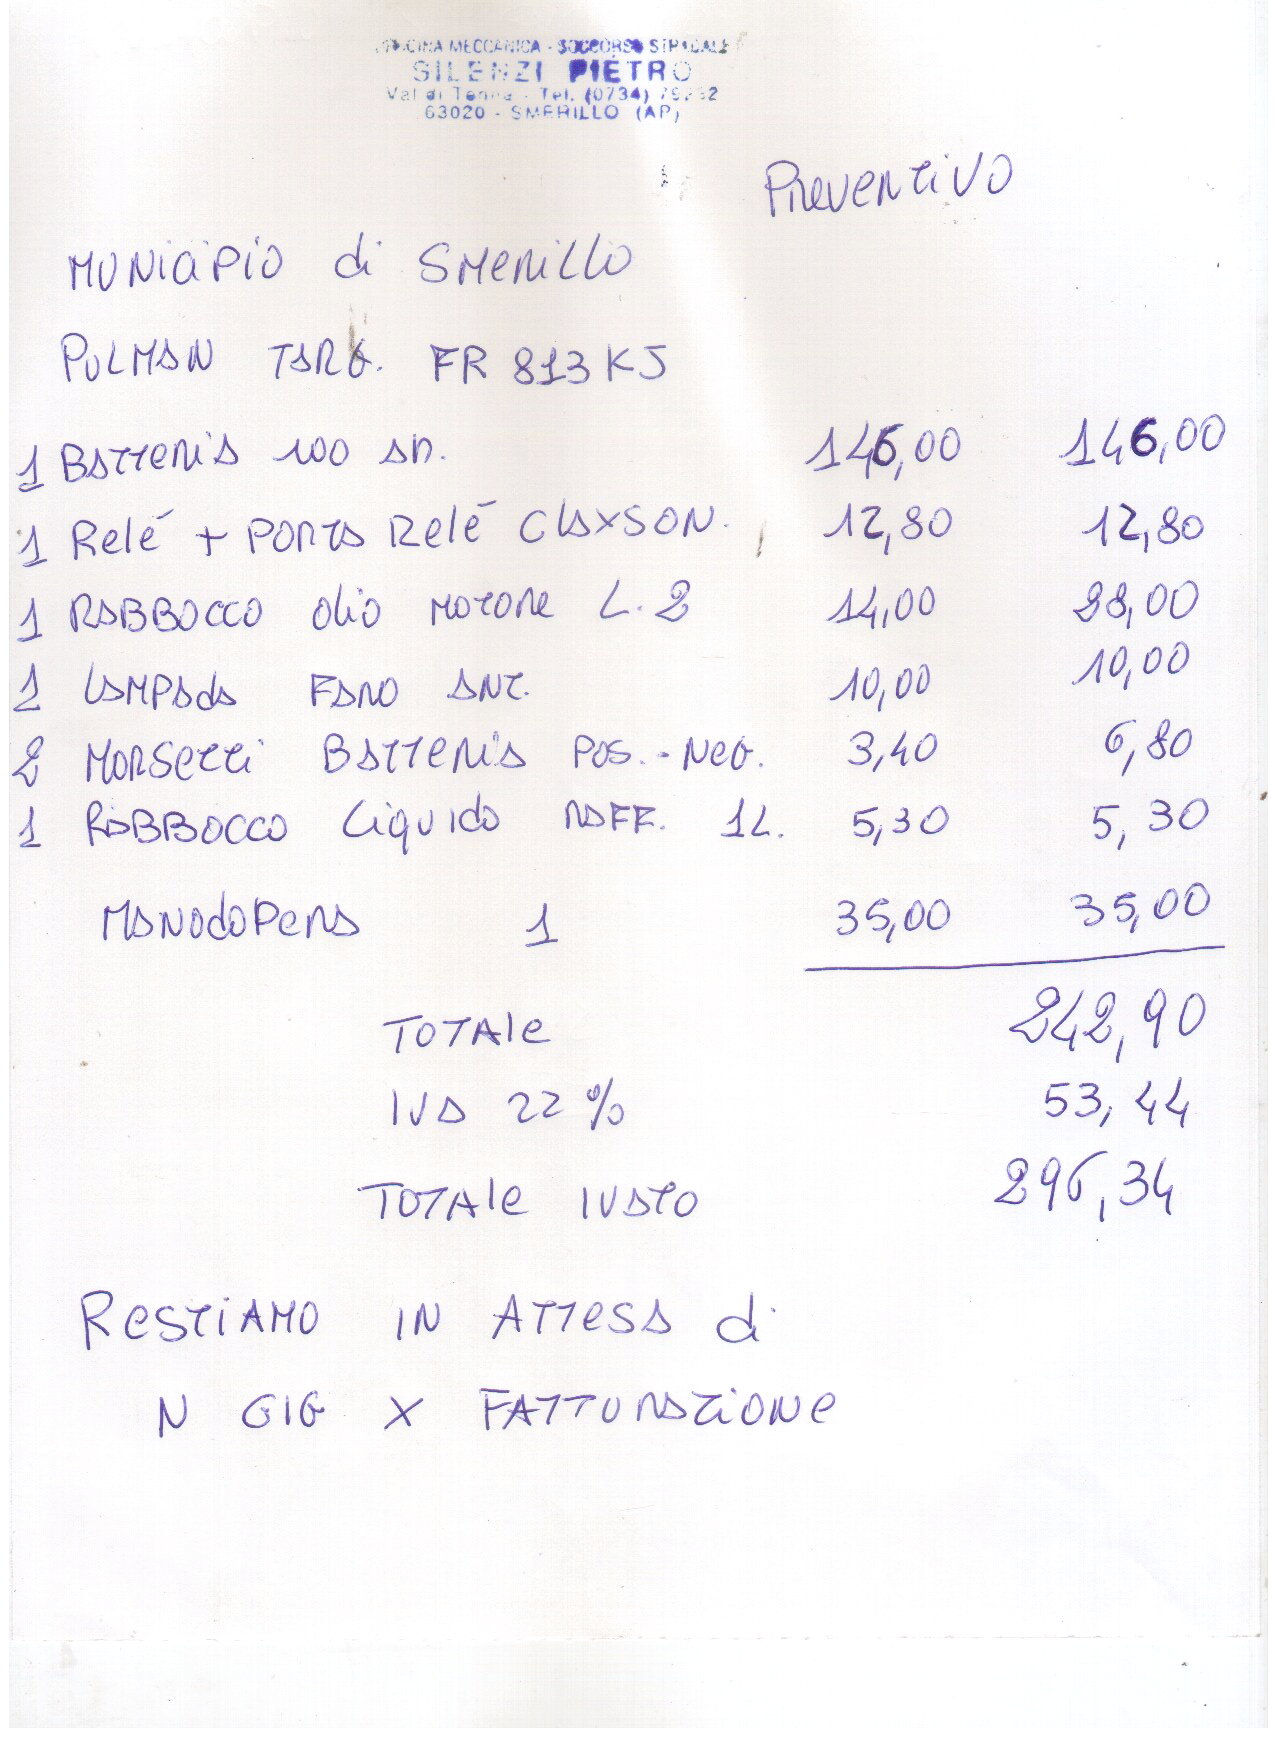 OFFICINA MECCANICA - SOCCORSO STRADALE
SILENZI PIETRO
Val di Tenna - Tel. (0734)
63020 - SMERILLO (AP)
Preventivo
MUNICIPIO di SMERILLO
PULMAN TARG. FR 813 KJ
1 BATTERIA 100 AH. 146,00 146,00
1 Relé + PORTA Relé CLAXSON. 12,80 12,80
1 RABBOCCO olio MOTORE L. 2 14,00 28,00
1 LAMPADA FARO ANT. 10,00 10,00
2 MORSETTI BATTERIA POS. - NEG. 3,40 6,80
1 RABBOCCO LIQUIDO RAFF. 1L. 5,30 5,30
MANODOPERA 1 35,00 35,00
TOTALE 242,90
IVA 22 % 53,44
TOTALE IVATO 296,34
RESTIAMO IN ATTESA di
N GIG X FATTURAZIONE